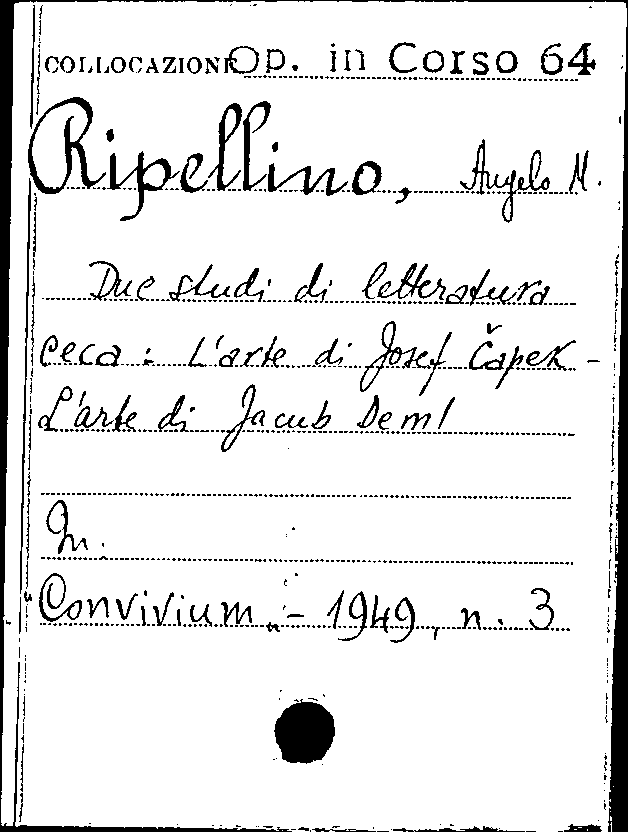 COLLOCAZIONE Op. in Corso 64
Ripellino, Angelo M.
Due studi di letteratura
ceca: L'arte di Josef Čapek -
L'arte di Jacub Deml
In:
Convivium. - 1949, n. 3